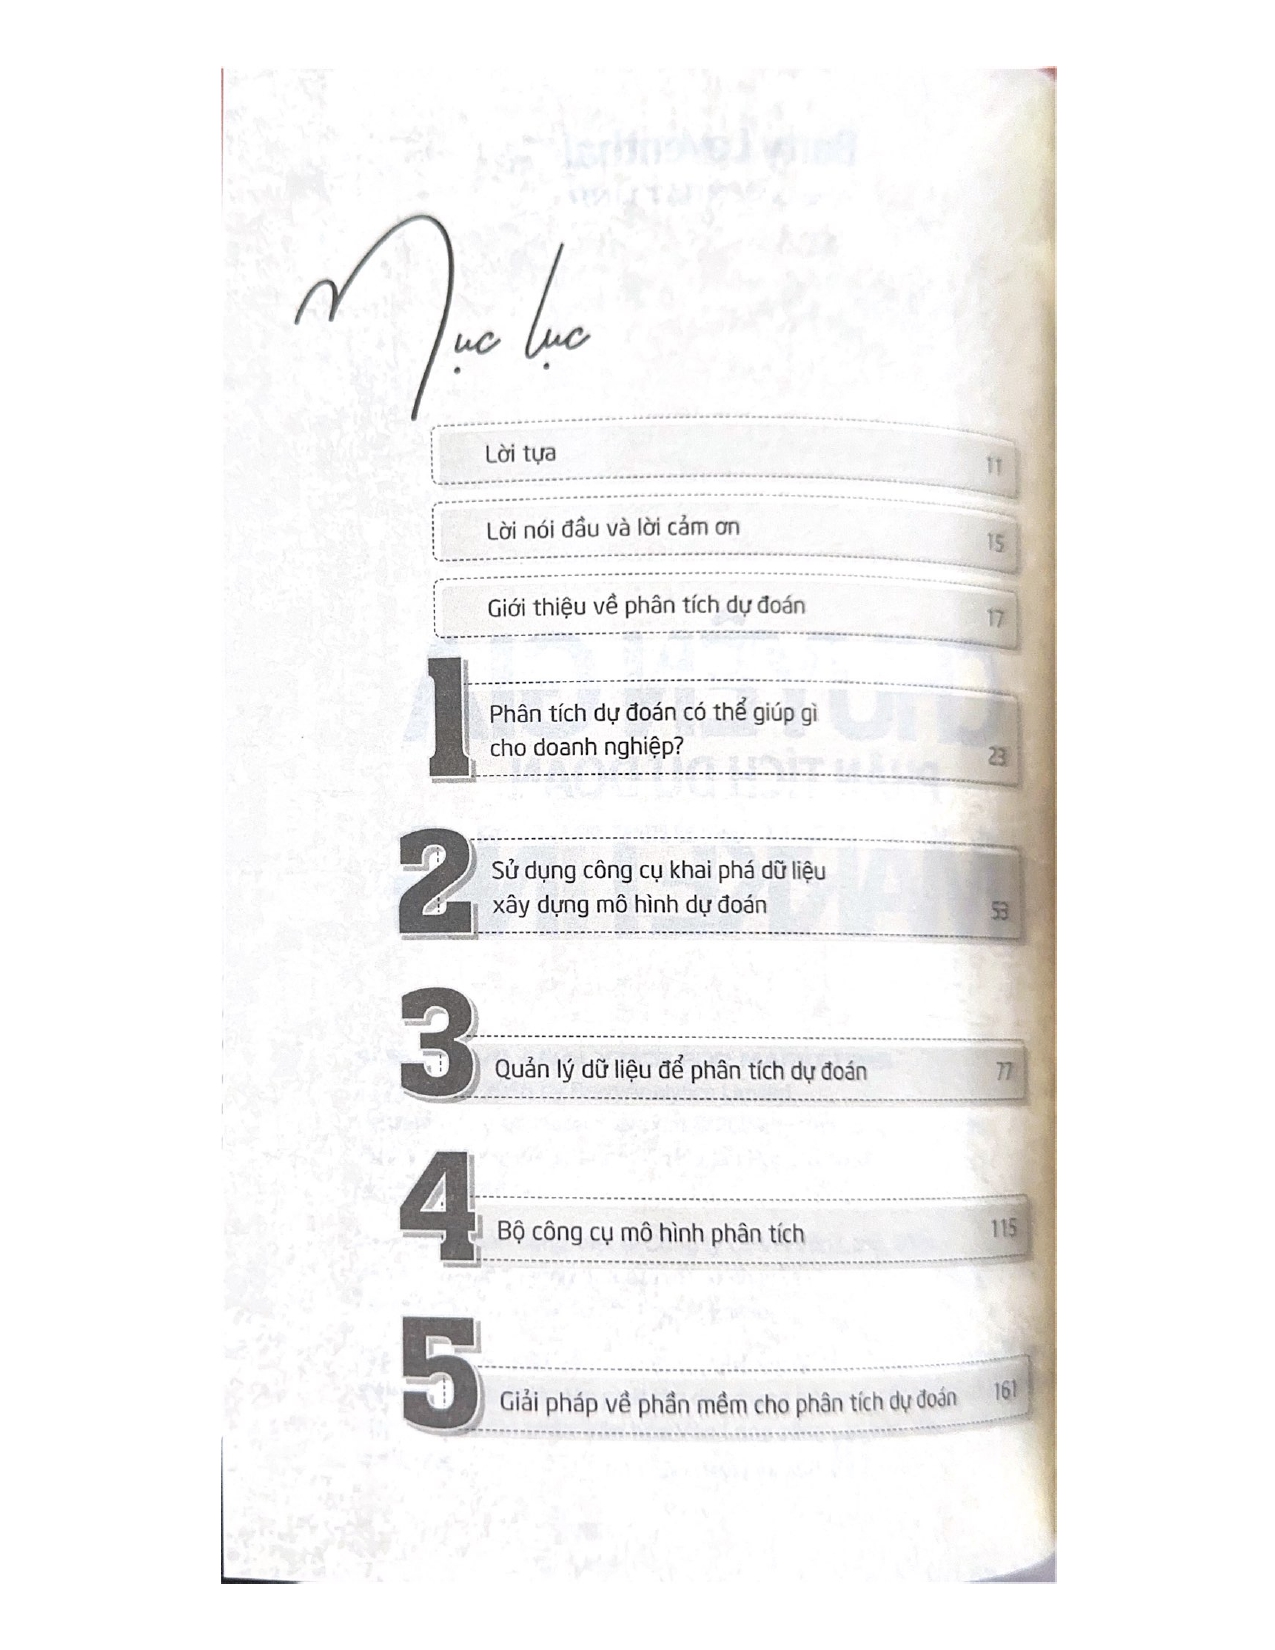 Mục lục
Lời tựa 11
Lời nói đầu và lời cảm ơn 15
Giới thiệu về phân tích dự đoán 17
1
Phân tích dự đoán có thể giúp gì
cho doanh nghiệp? 23
2
Sử dụng công cụ khai phá dữ liệu
xây dựng mô hình dự đoán 53
3
Quản lý dữ liệu để phân tích dự đoán 77
4
Bộ công cụ mô hình phân tích 115
5
Giải pháp về phần mềm cho phân tích dự đoán 161